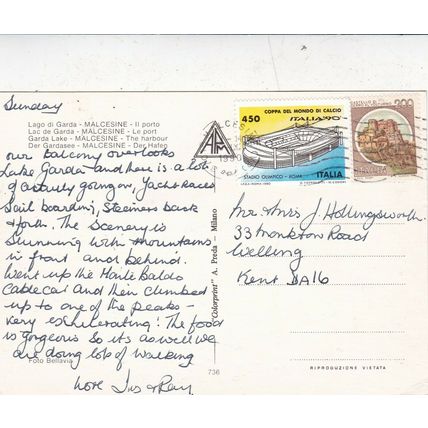 Sunday
Lago di Garda - MALCESINE - Il porto
Lac de Garda - MALCESINE - Le port
Garda Lake - MALCESINE - The harbour
Der Gardasee - MALCESINE - Der Hafeg
our balcony overlooks
Lake Garda and here is a lot
of activity going on, Yacht races
Sail boarding, Steamers back
& forth. The scenery is
Stunning with mountains
in front and behind.
Went up the Monte Baldo
Cablecar and then climbed
up to one of the peaks -
very exhilerating! The food
is gorgeous so its as well we
are doing lots of walking
Foto Bellavia
love & Ray
736
"Colorprint" A. Preda - Milano
450
COPPA DEL MONDO DI CALCIO
ITALIA'90
STADIO OLIMPICO - ROMA
ITALIA
200
1990
Mr & Mrs J. Hollingsworth
33 Monkton Road
Welling
Kent DA16
RIPRODUZIONE VIETATA